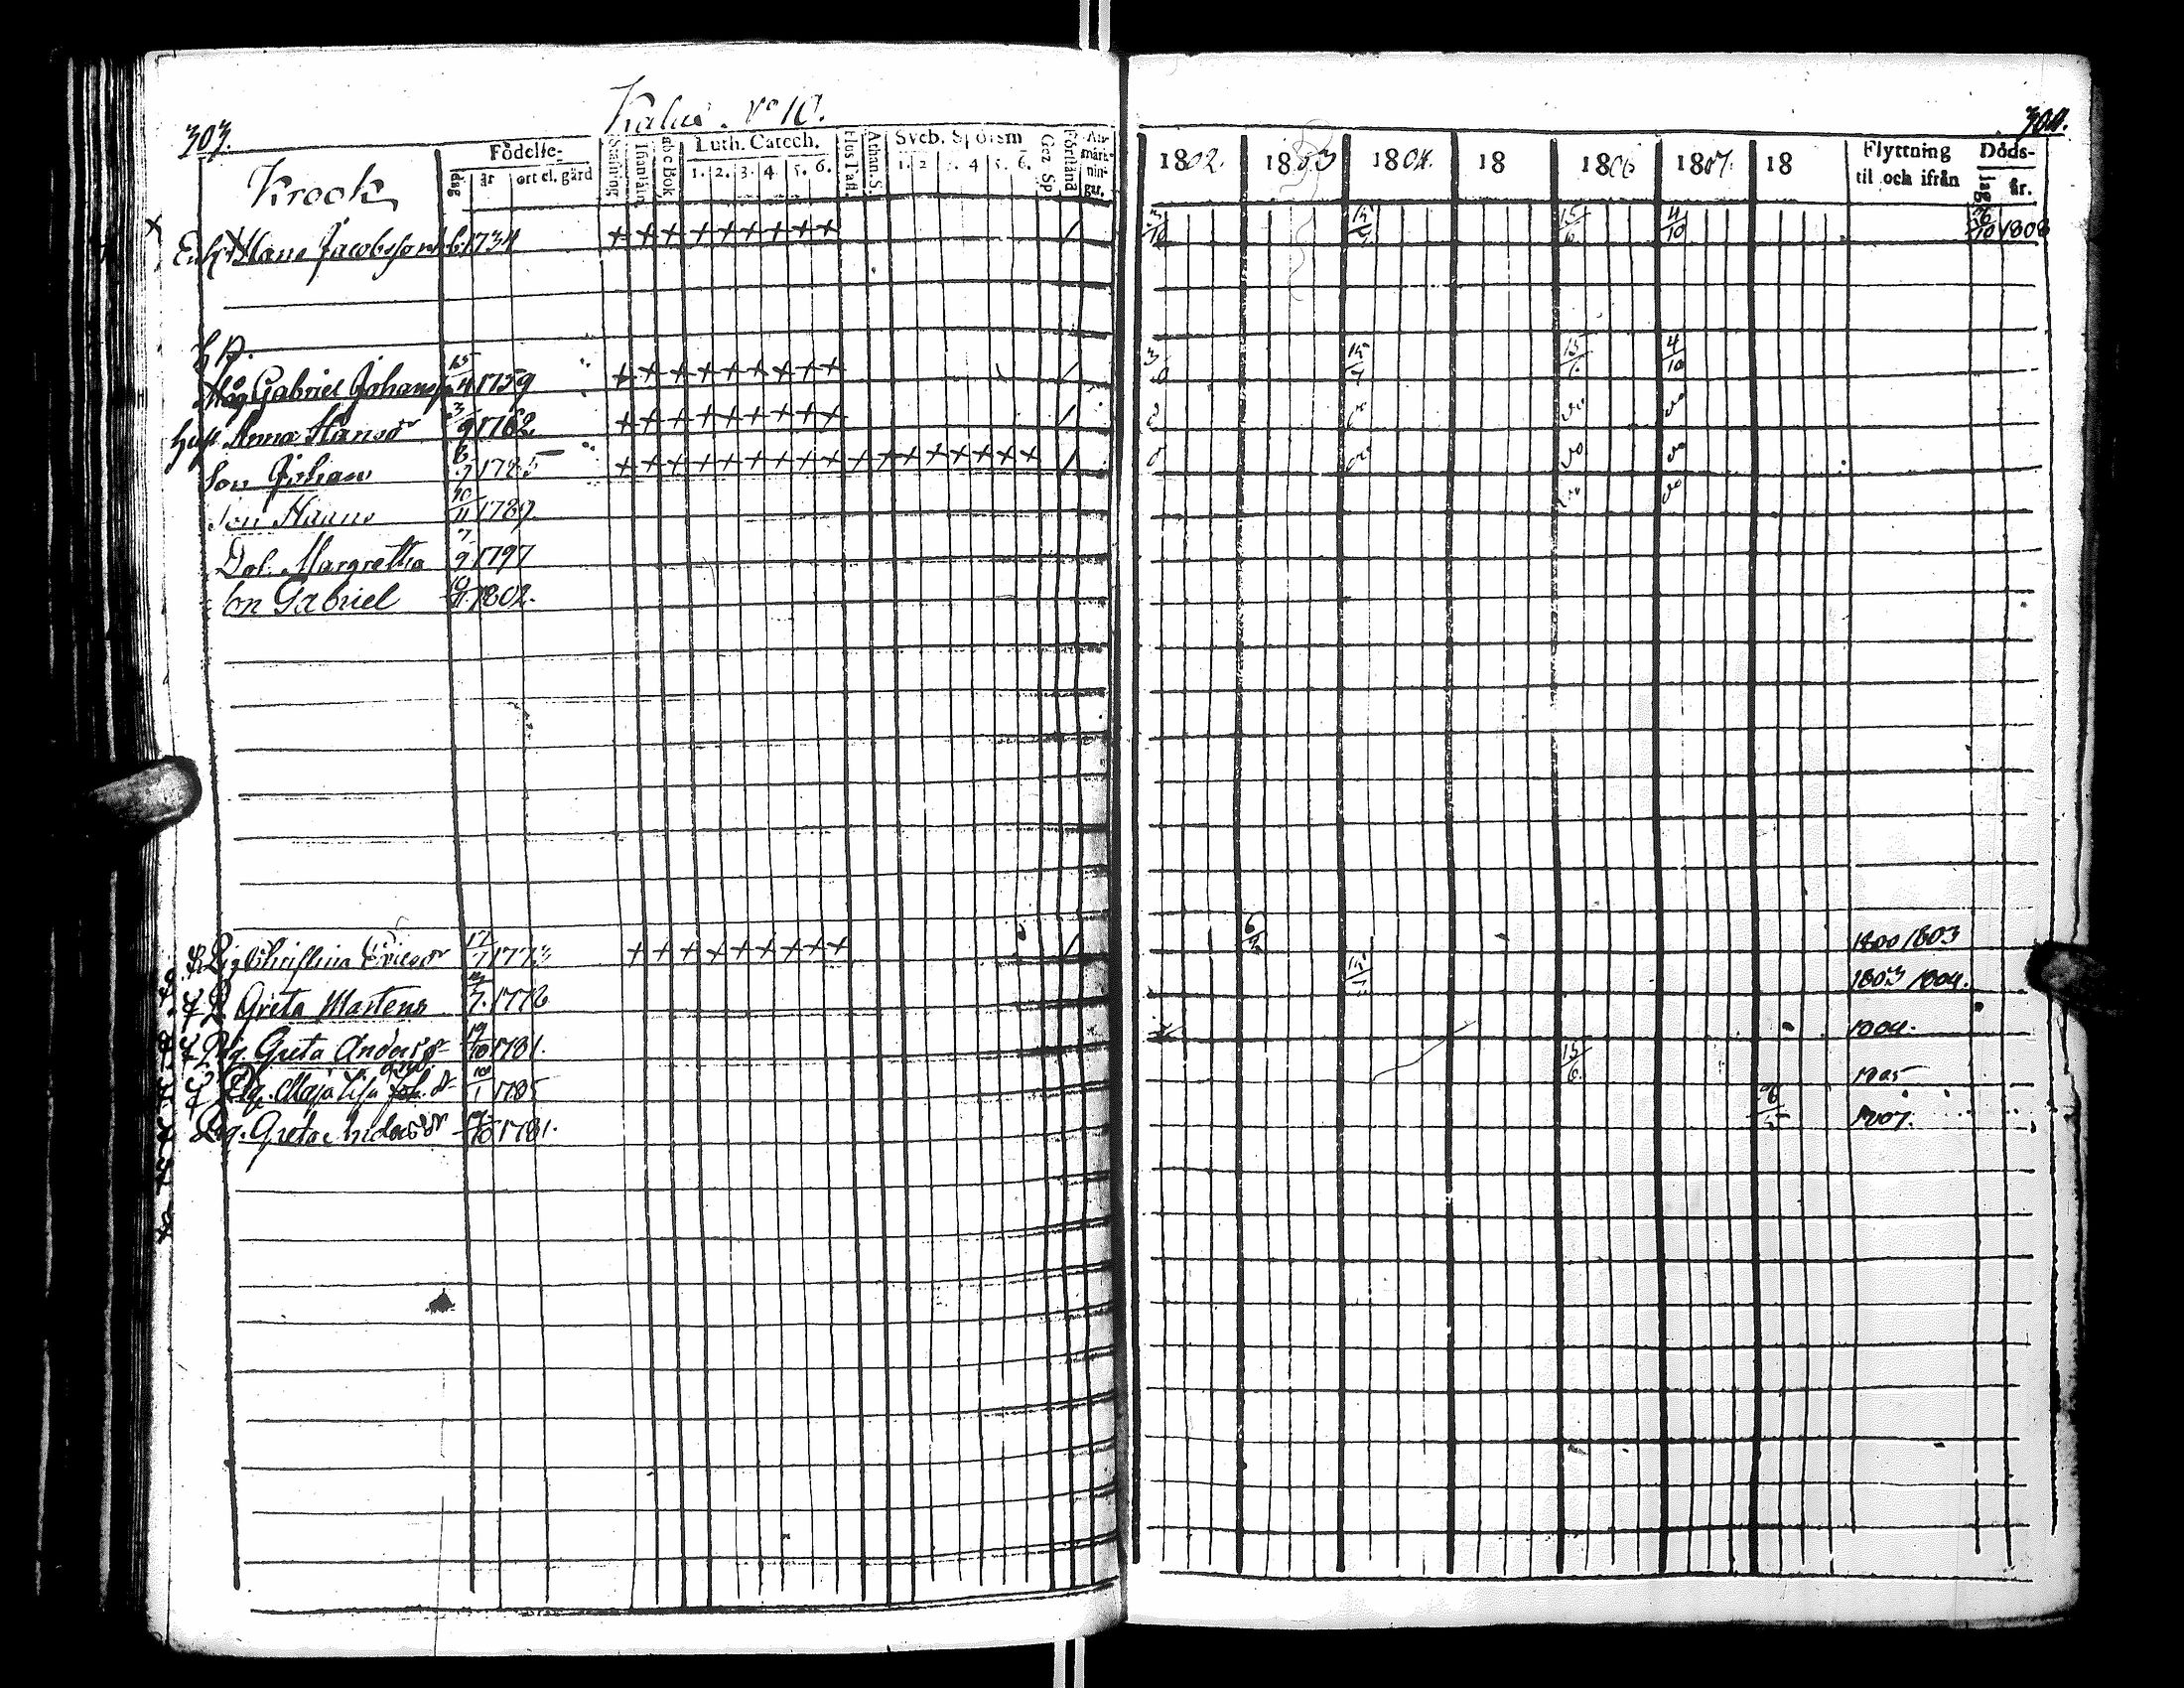 303.
Kalus. No 10.
Krook
Födelse-
dag år ort el. gård
Stafning
Innanläs
abc Bok
Luth. Catech.
1. 2. 3. 4. 5. 6.
Hus Tafl.
Athan. S.
Sveb. Spörsm
1. 2 3. 4 5. 6.
Gez. Sp
Förstånd
An-
märk-
nin-
gar.
Enk. Hans Jacobsson 1734 + + + + + + + + + /
Måg Gabriel Johanss 15/4 1759 + + + + + + + + + /
Hust Anna Hansdr 3/9 1762 + + + + + + + + + /
Son Johan 6/7 1785 + + + + + + + + + + + + + + + + + /
Son Hans 10/11 1789
Dot. Margretha 7/9 1797
Son Gabriel 10/11 1802.
Pig Christina Ericsdr 17/7 1773 + + + + + + + + + /
Greta Martens 7. 1772
Pig. Greta Andersd 19/10 1781.
Pig. Maja Lisa 10/1 1785
Pig. Greta Andersdr 19/10 1781.
304.
1802. 1803 1804. 18 1806 1807. 18
Flyttning
til och ifrån
Döds-
dag år.
3/10 15/6 4/10 26/10 1808
15/6 4/10
do do
do do
do do
6/2 1800 1803
1803 1804.
1804.
15/6 1805
1807.